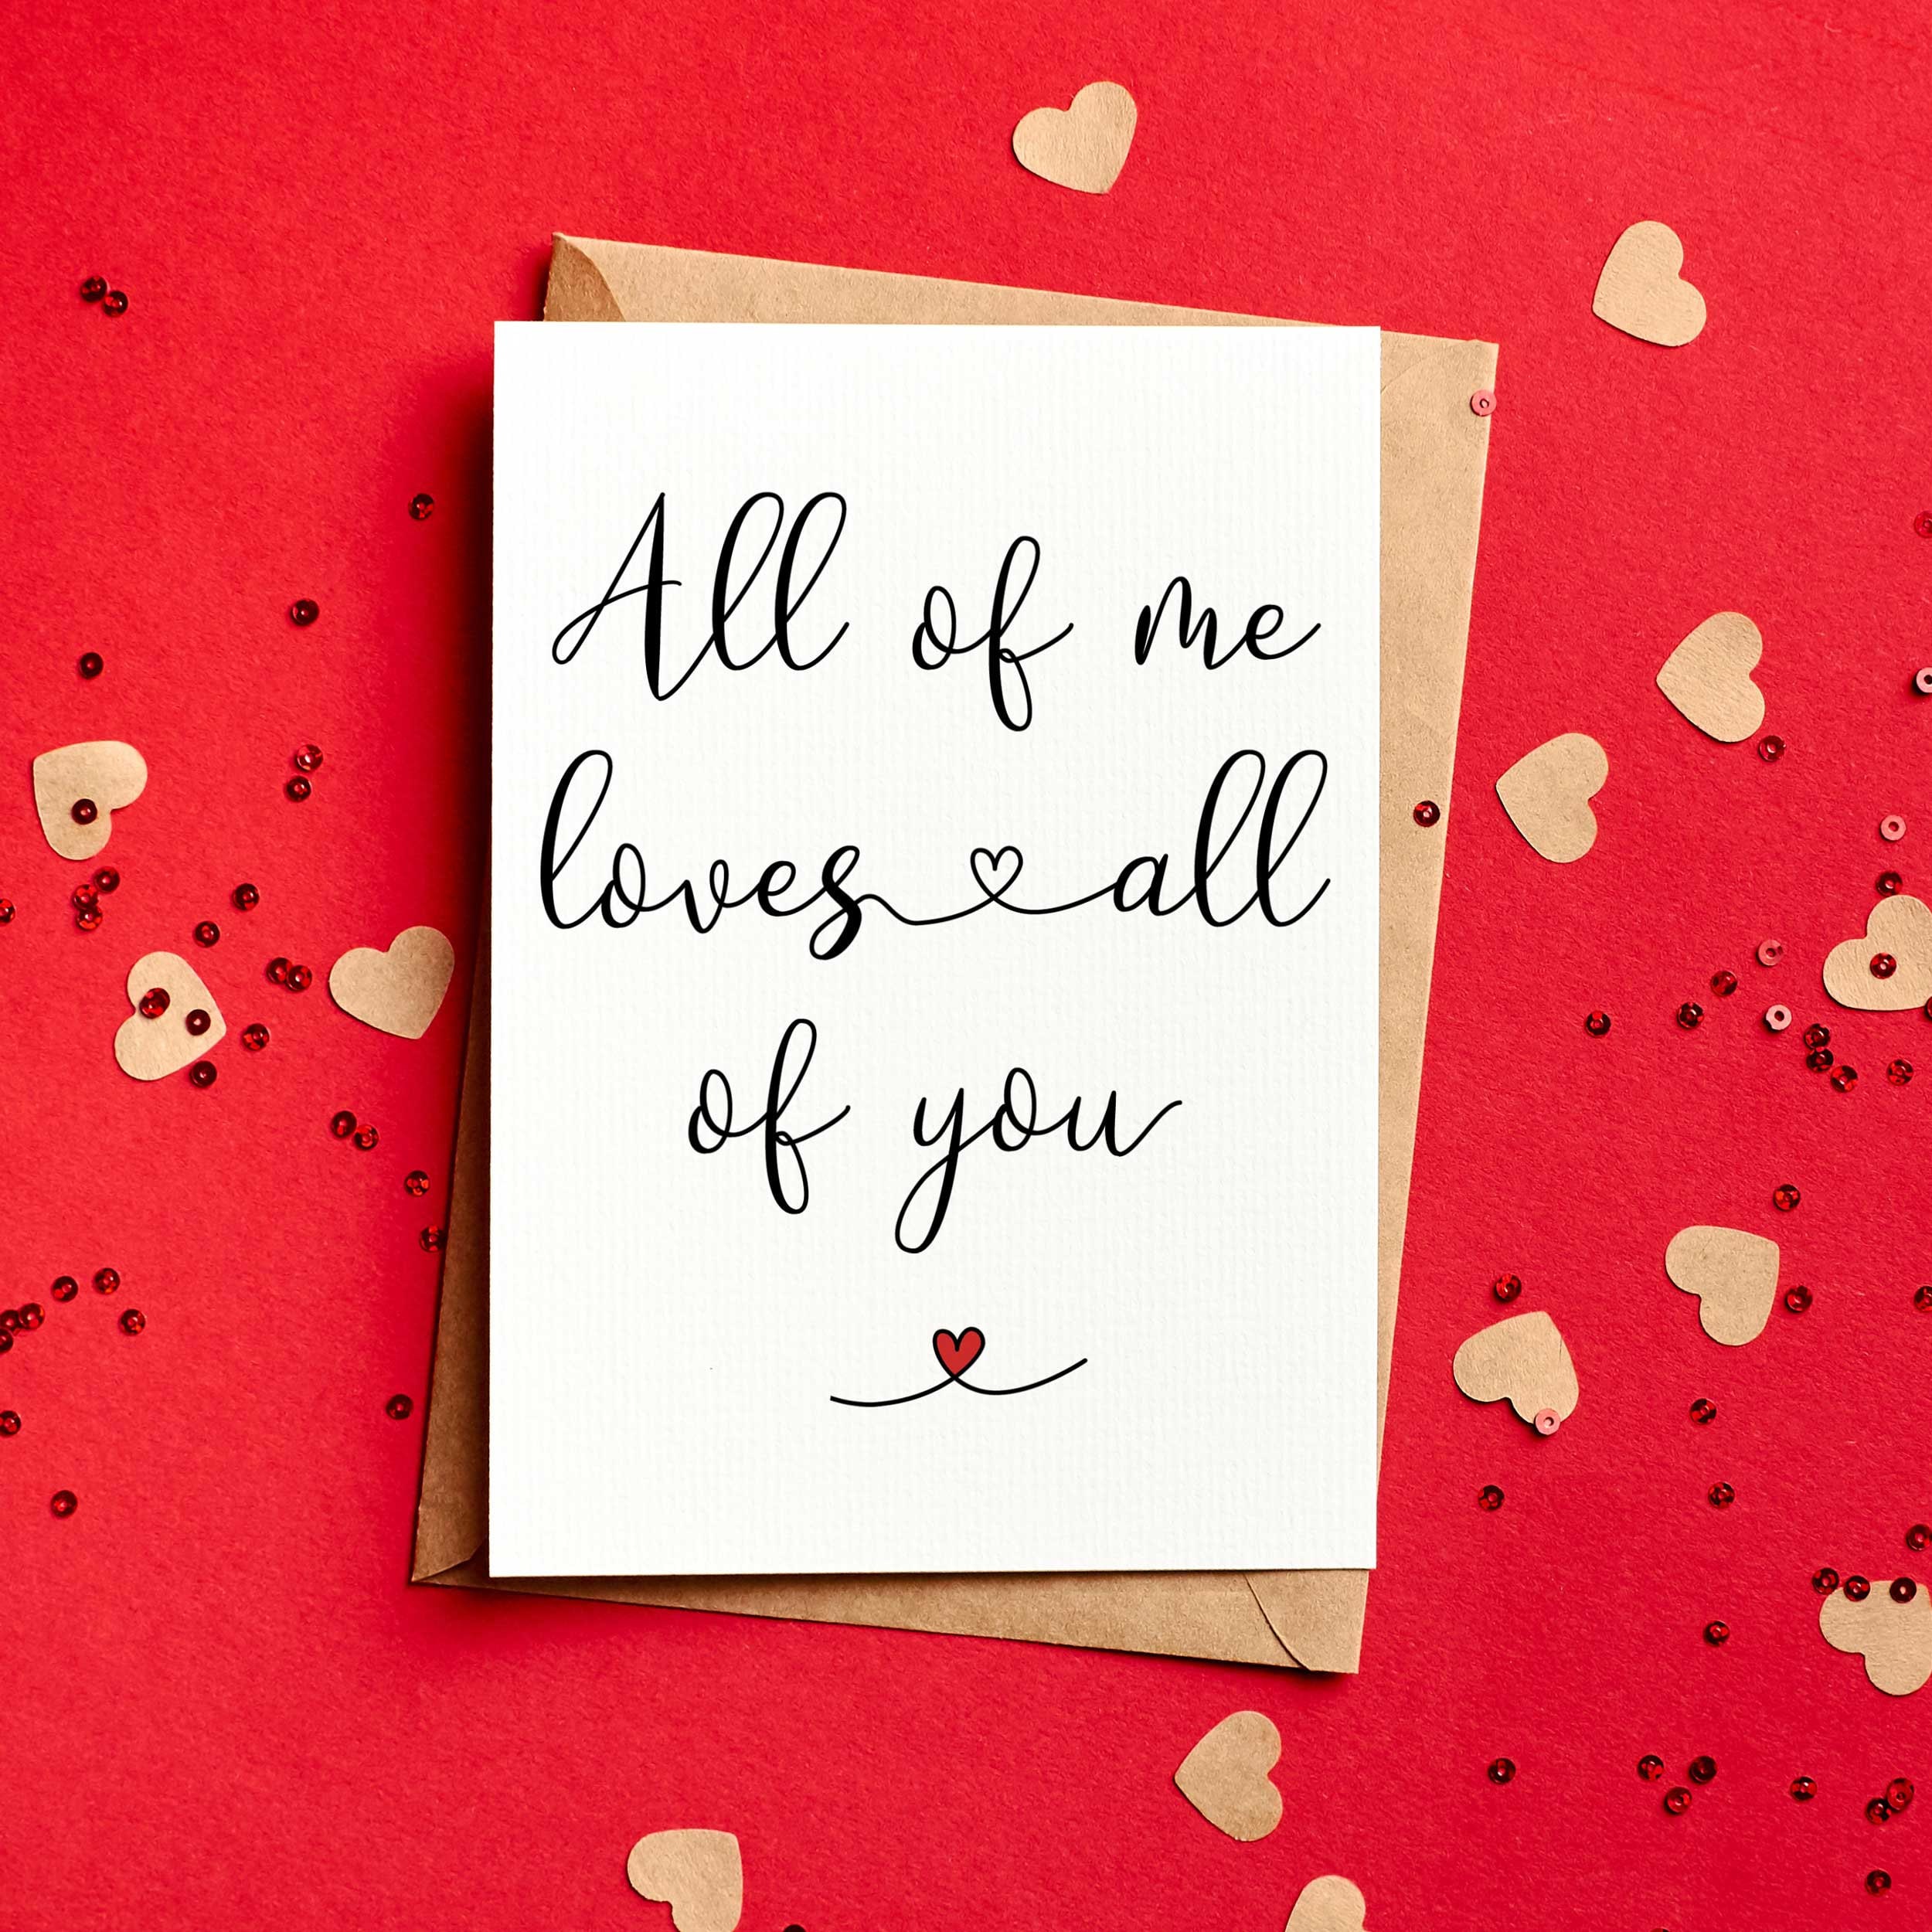 All of me
loves all
of you